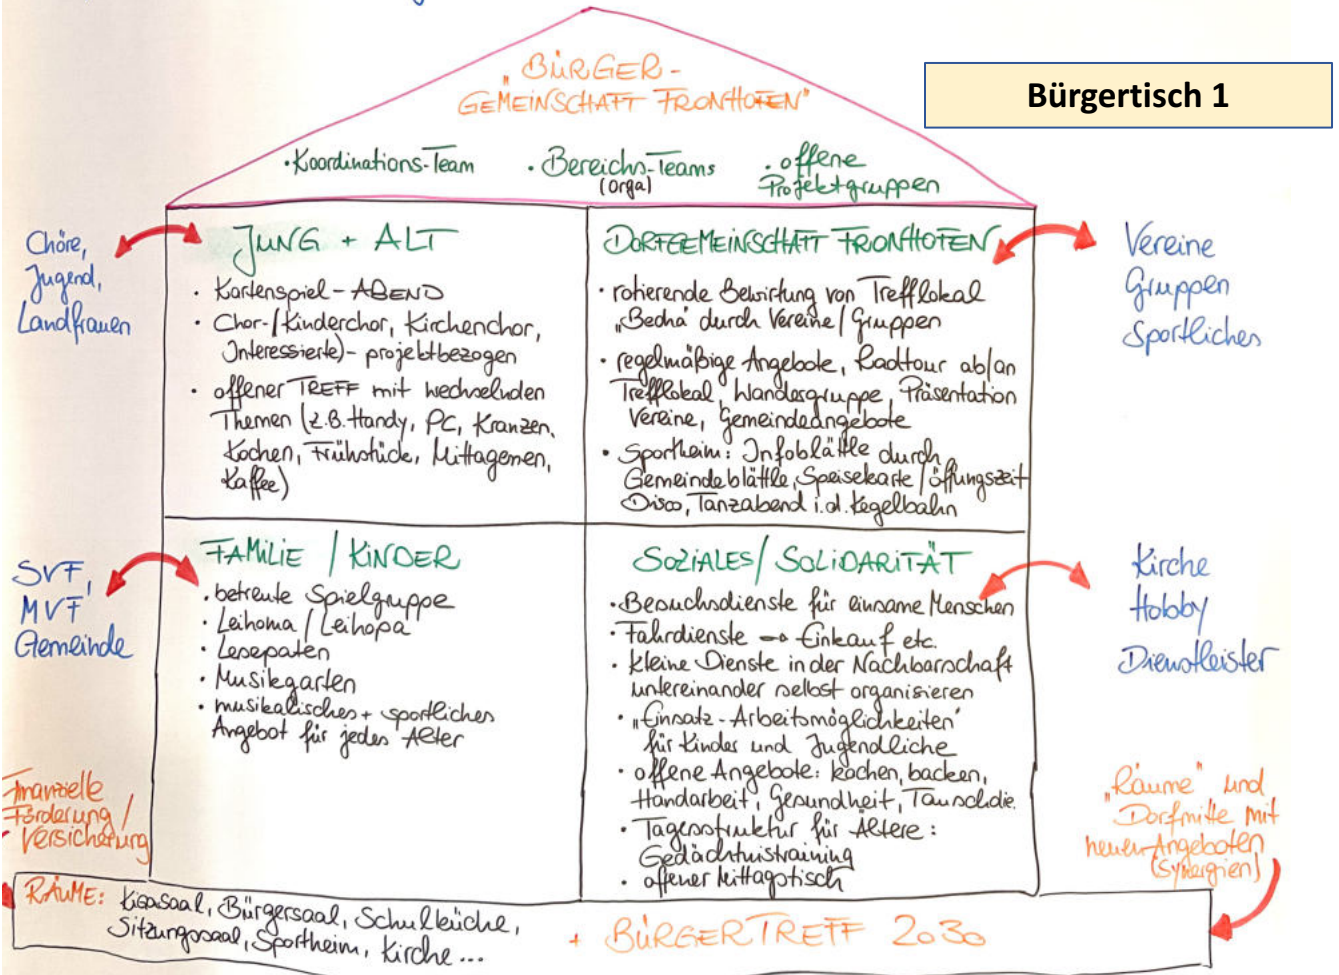 „BÜRGER-
GEMEINSCHAFT FRONHOFEN"
Bürgertisch 1
• Koordinations-Team
• Bereichs-Teams
(Orga)
• offene
Projektgruppen
Chöre,
Jugend,
Landfrauen
JUNG + ALT
• Kartenspiel-ABEND
• Chor-/Kinderchor, Kirchenchor,
Interessierte)- projektbezogen
• offener TREFF mit wechselnden
Themen (z.B. Handy, PC, Kranzen,
Kochen, Frühstück, Mittagessen,
Kaffee)
DORFGEMEINSCHAFT FRONHOFEN
• rotierende Bewirtung von Trefflokal
„Bedha" durch Vereine/Gruppen
• regelmäßige Angebote, Radtour ab/an
Trefflokal, Wandergruppe, Präsentation
Vereine, Gemeindeangebote
• Sportheim: Infoblättle durch
Gemeindeblättle, Speisekarte/Öffungszeit
Disco, Tanzabend i.d. Kegelbahn
Vereine
Gruppen
Sportliches
SVF,
MVF,
Gemeinde
FAMILIE / KINDER
• betreute Spielgruppe
• Leihoma / Leihopa
• Lesepaten
• Musikgarten
• musikalisches + sportliches
Angebot für jedes Alter
SOZIALES/ SOLIDARITÄT
• Besuchsdienste für einsame Menschen
• Fahrdienste → Einkauf etc.
• kleine Dienste in der Nachbarschaft
untereinander selbst organisieren
• „Einsatz-Arbeitsmöglichkeiten"
für Kinder und Jugendliche
• offene Angebote: kochen, backen,
Handarbeit, Gesundheit, Tauschdie.
• Tagesstruktur für Ältere:
Gedächtnistraining
• offener Mittagstisch
Kirche
Hobby
Dienstleister
Finanzielle
Förderung/
Versicherung
„Räume" und
„Dorfmitte mit
neuen Angeboten
(Synergien)
RÄUME: Kigasaal, Bürgersaal, Schulküche,
Sitzungssaal, Sportheim, Kirche...
+ BÜRGERTREFF 2030